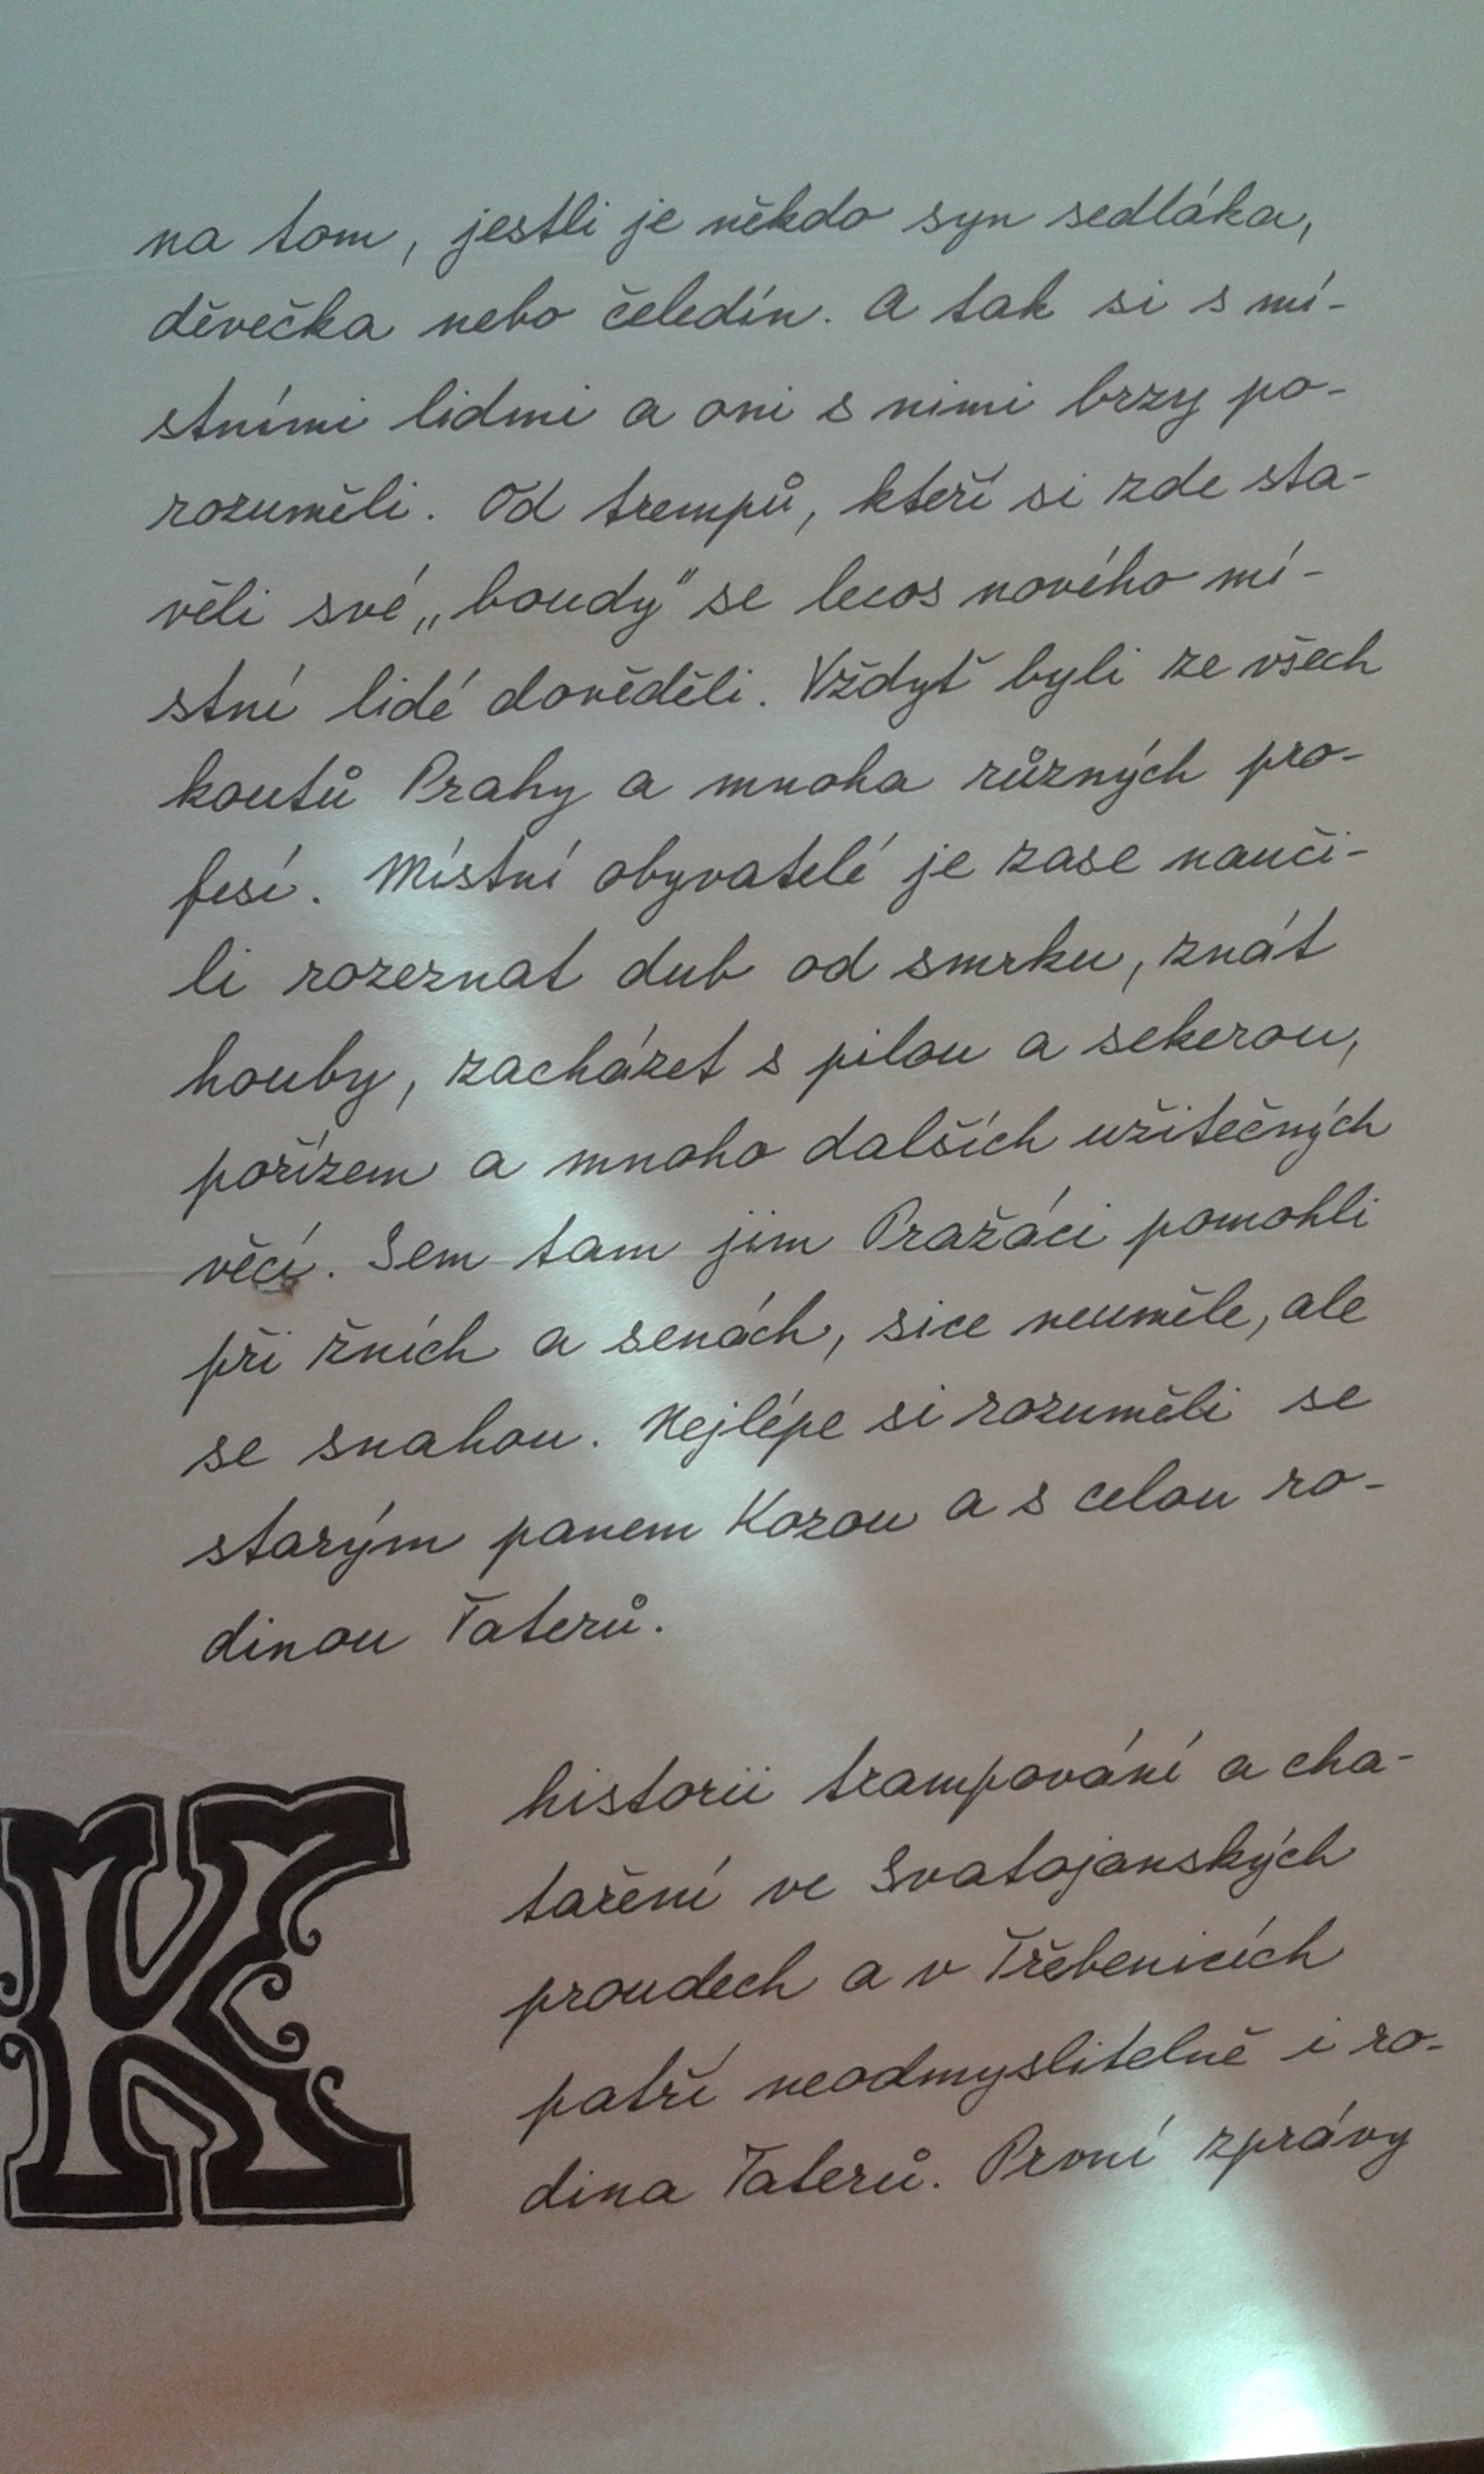 na tom, jestli je někdo syn sedláka,
děvečka nebo čeledín. A tak si s mí-
stními lidmi a oni s nimi brzy po-
rozuměli. Od trempů, kteří si zde sta-
věli své „boudy" se lecos nového mí-
stní lidé dověděli. Vždyť byli ze všech
koutů Prahy a mnoha různých pro-
fesí. Místní obyvatelé je zase nauči-
li rozeznat dub od smrku, znát
houby, zacházet s pilou a sekerou,
pořízem a mnoho dalších užitečných
věcí. Sem tam jim Pražáci pomohli
při žních a senách, sice neuměle, ale
se snahou. Nejlépe si rozuměli se
starým panem Kozou a s celou ro-
dinou Taterů.
K historii trampování a cha-
taření ve Svatojanských
proudech a v Třebenicích
patří neodmyslitelně i ro-
dina Taterů. První zprávy